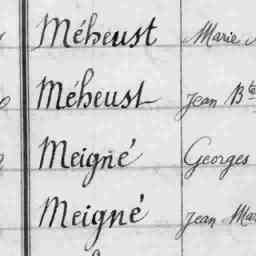 Méheust Marie
Méheust Jean Bte
Meigné Georges
Meigné Jean Mar